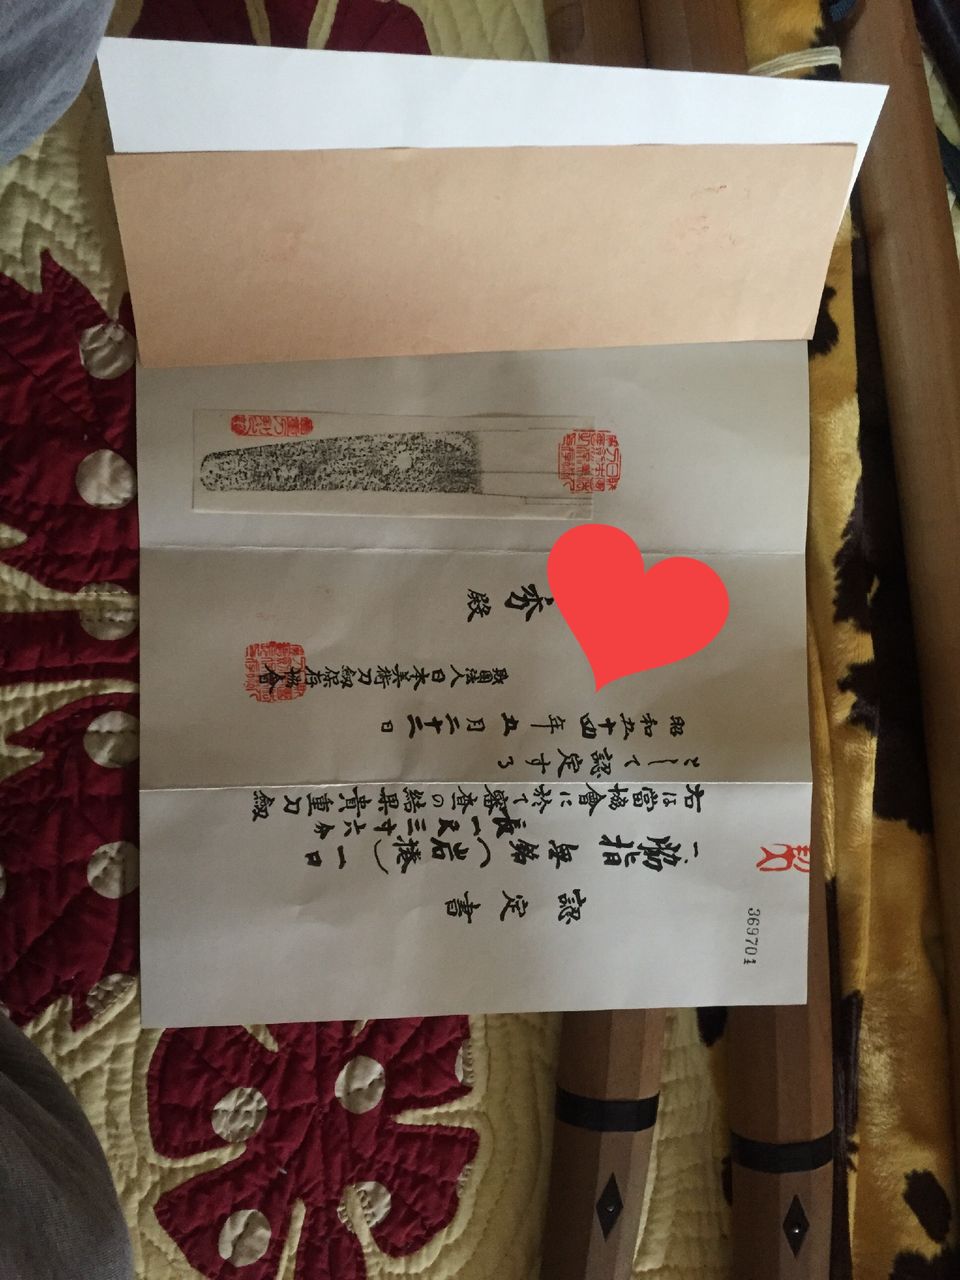 369701
認定書
一、脇指 無銘(出石捲) 一口
長一尺三寸六分
右は當協會に於て審査の結果貴重刀劔
として認定する
昭和五十四年五月二十三日
財團法人日本美術刀劔保存協會
殿